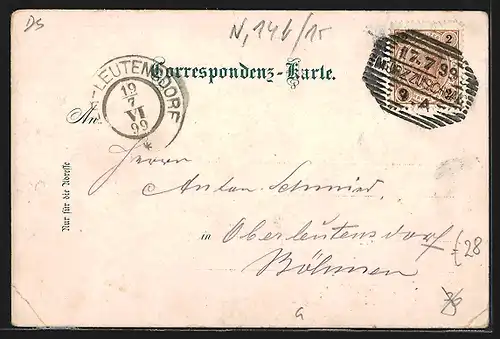 DS
N, 146/15
2
17.7.99
MÜRZZUSCHLAG
9 A
LEUTENSDORF
19
7
VI
99
*
Correspondenz-Karte.
An
Herrn
Anton Schmied
in Oberleutensdorf
Böhmen
Nur für die Adresse
(28
a